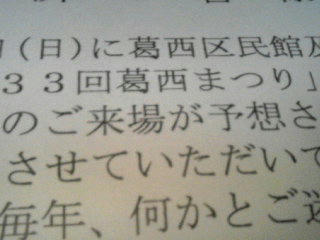 （日）に葛西区民館及
３３回葛西まつり」
のご来場が予想さ
させていただいて
毎年、何かとご迷